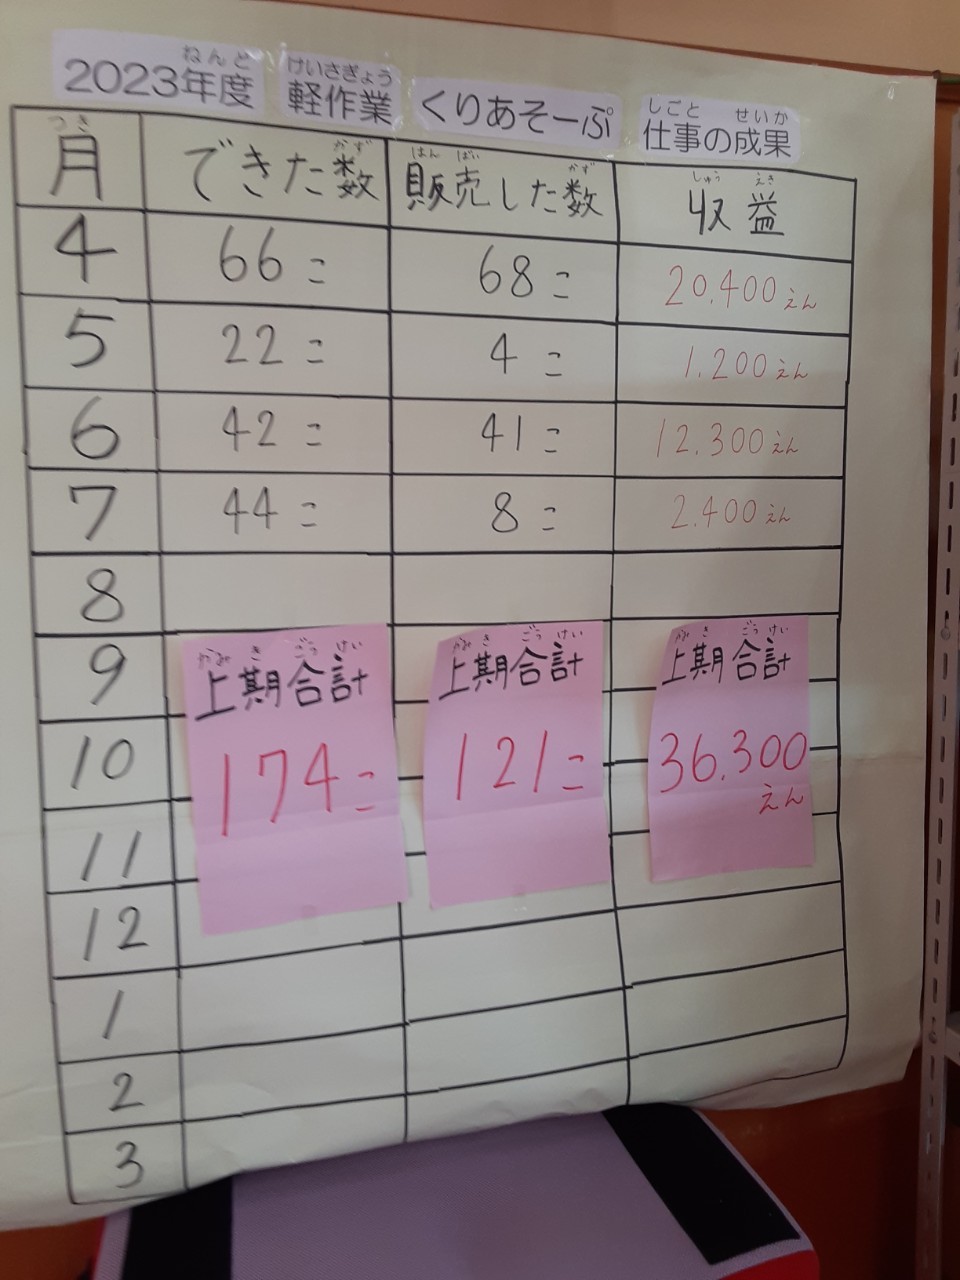 ねんど けいさぎょう しごと せいか
2023年度 軽作業 くりあそーぷ 仕事の成果
つき かず はん ばい かず しゅう えき
月 できた数 販売した数 収益
4 66こ 68こ 20.400えん
5 22こ 4こ 1.200えん
6 42こ 41こ 12.300えん
7 44こ 8こ 2.400えん
8
9
10
11
12
1
2
3
かみ き ごう けい
上期合計
174こ
かみ き ごう けい
上期合計
121こ
かみ き ごう けい
上期合計
36.300
えん